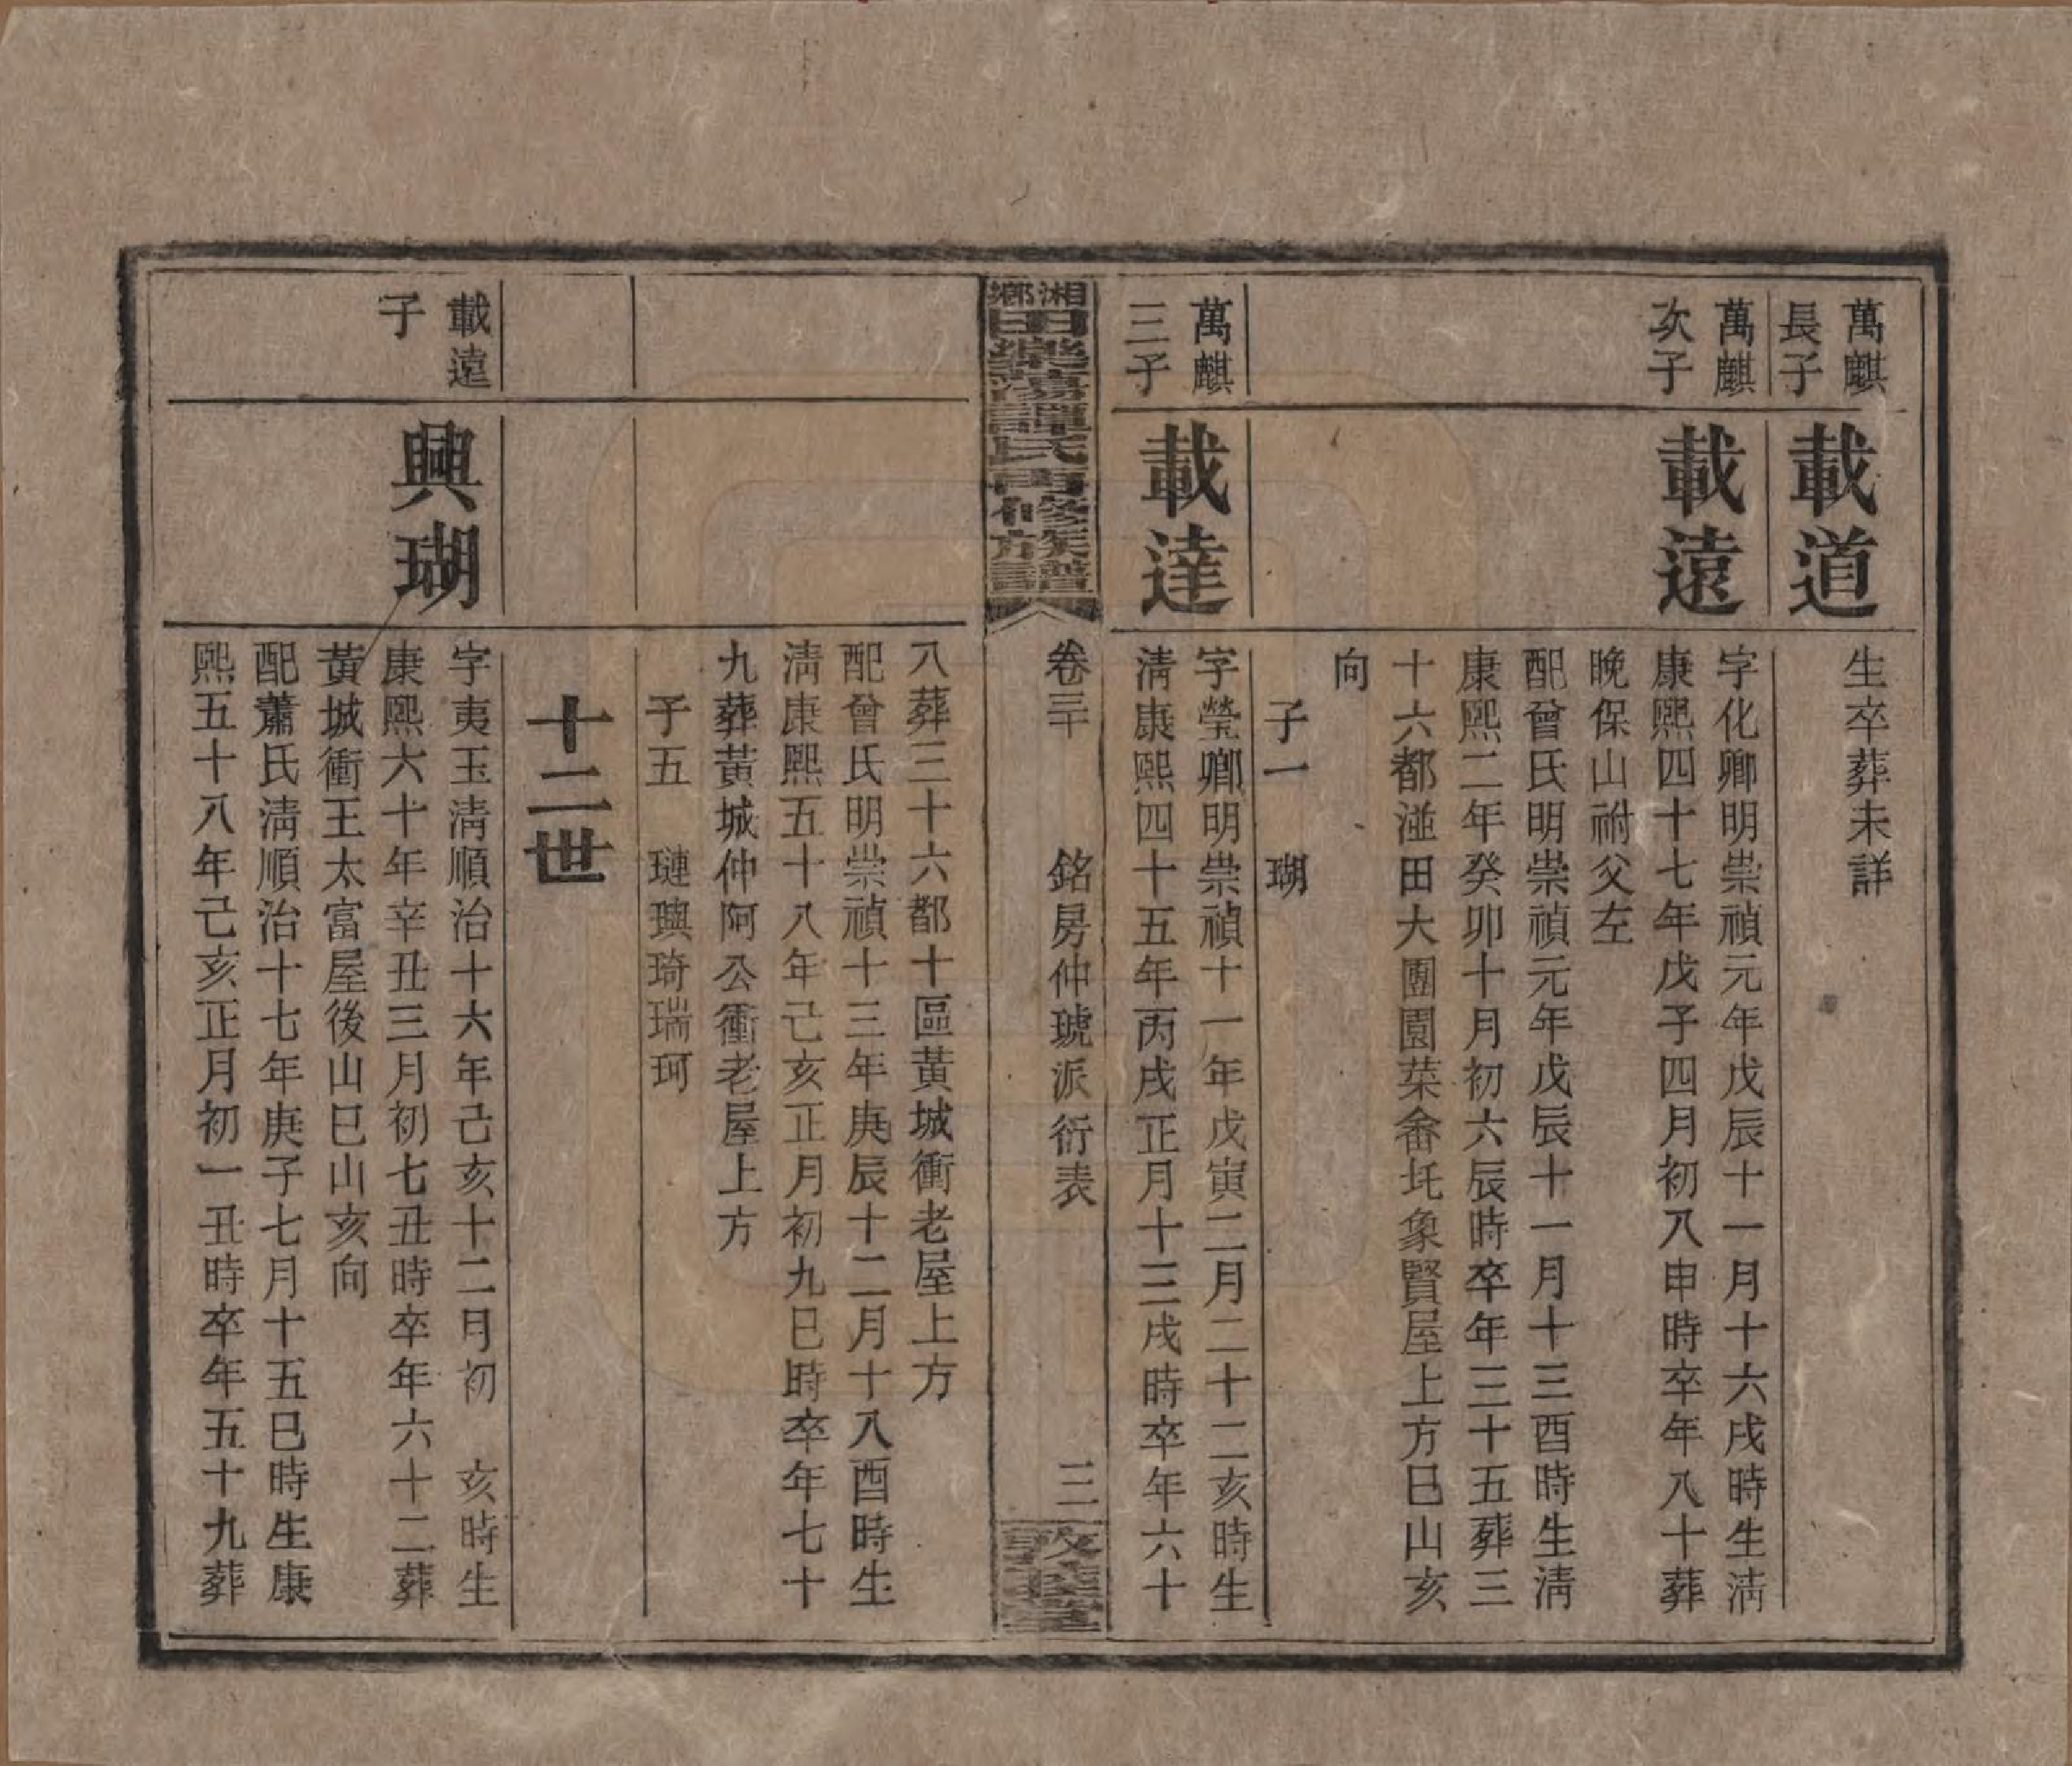 萬麒
長子
載道
生卒葬未詳
萬麒
次子
載遠
字化卿明崇禎元年戊辰十一月十六戌時生淸
康熙四十七年戊子四月初八申時卒年八十葬
晚保山祔父左
配曾氏明崇禎元年戊辰十一月十三酉時生淸
康熙二年癸卯十月初六辰時卒年三十五葬三
十六都溢田大團園菜畬圫象賢屋上方巳山亥
向
子一 瑚
萬麒
三子
載達
字瑩卿明崇禎十一年戊寅二月二十二亥時生
淸康熙四十五年丙戌正月十三戌時卒年六十
湘鄉田榮陽譚氏再修族譜
卷三 銘房仲琥派衍表
三
敦義堂
八葬三十六都十區黃城衝老屋上方
配曾氏明崇禎十三年庚辰十二月十八酉時生
淸康熙五十八年己亥正月初九巳時卒年七十
九葬黃城仲阿公衝老屋上方
子五 璉璵琦瑞珂
十二世
載遠
子
興瑚
字夷玉淸順治十六年己亥十二月初 亥時生
康熙六十年辛丑三月初七丑時卒年六十二葬
黃城衝王太富屋後山巳山亥向
配蕭氏淸順治十七年庚子七月十五巳時生康
熙五十八年己亥正月初一丑時卒年五十九葬